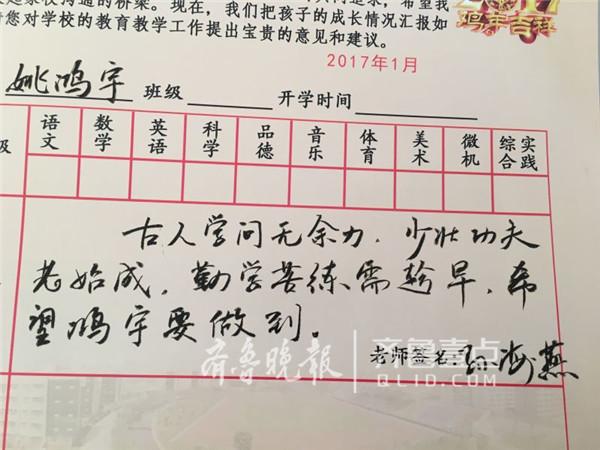 起家校沟通的桥梁。现在，我们把孩子的成长情况汇报如
请您对学校的教育教学工作提出宝贵的意见和建议。
鸡年吉祥
2017年1月
姚鸿宇 班级 开学时间
级 语文 数学 英语 科学 品德 音乐 体育 美术 微机 综合实践
古人学问无余力，少壮功夫
老始成，勤学苦练需趁早，希
望鸿宇要做到。
老师签名：孙海燕
齐鲁晚报 齐鲁壹点
QLID.COM